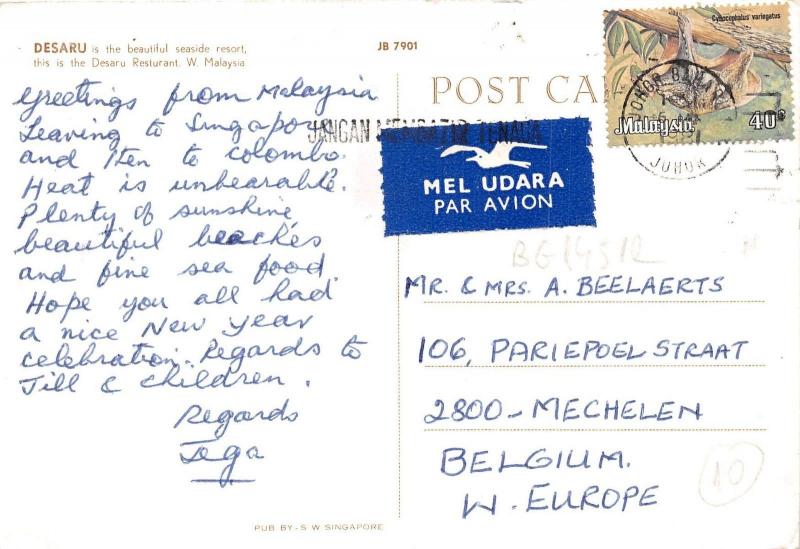 DESARU is the beautiful seaside resort,
this is the Desaru Resturant. W. Malaysia
JB 7901
POST CA
Cynocephalus variegatus
Malaysia 40c
JOHOR BAHARU
JOHOR
JANGAN MEMBAZIR TENAGA
MEL UDARA
PAR AVION
Greetings from Malaysia
Leaving to Singapore
and then to Colombo.
Heat is unbearable.
Plenty of sunshine,
beautiful beaches
and fine sea food.
Hope you all had
a nice New Year
celebration. Regards to
Jill & children.
Regards
Jega
MR. & MRS. A. BEELAERTS
106, PARIEPOEL STRAAT
2800-MECHELEN
BELGIUM.
W. EUROPE
10
PUB BY-S W SINGAPORE